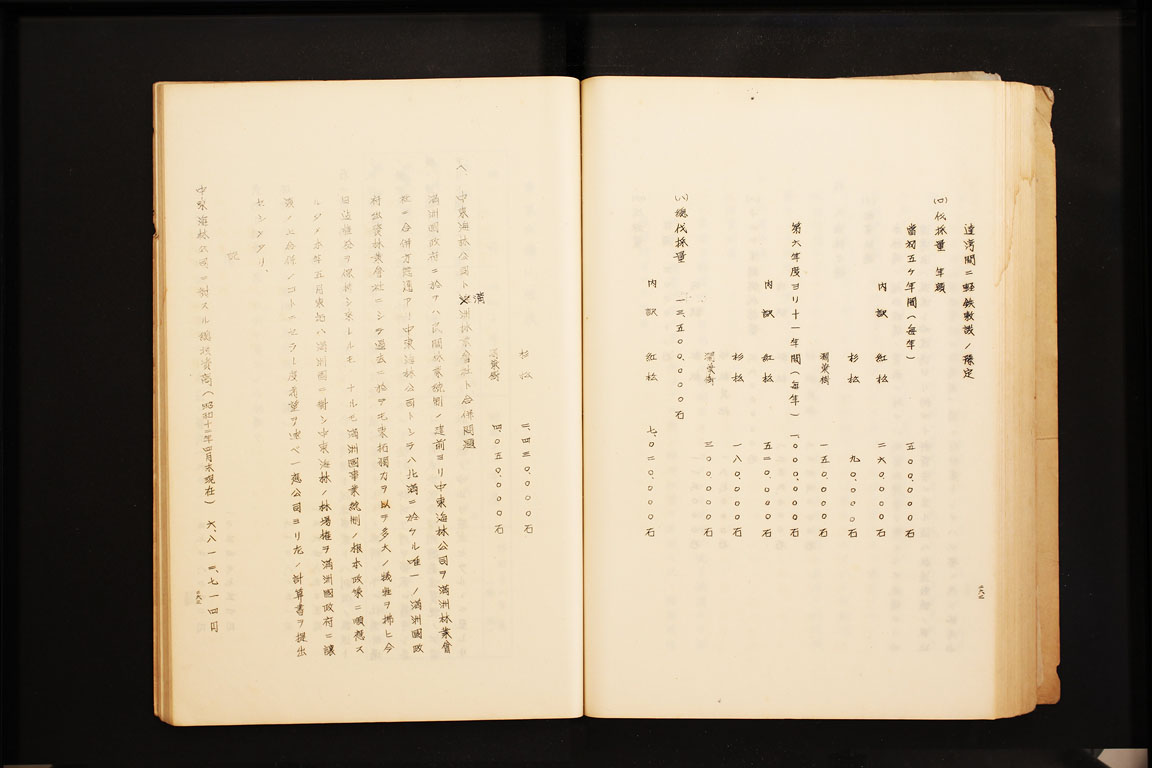 達溝間ニ軽鉄敷設ノ豫定
(ロ)伐採量 年額
當初五ケ年間(毎年) 五〇〇、〇〇〇石
内訳 紅松 二六〇、〇〇〇石
杉松 九〇、〇〇〇石
濶葉樹 一五〇、〇〇〇石
第六年度ヨリ十一年間(毎年) 一、〇〇〇、〇〇〇石
内訳 紅松 五二〇、〇〇〇石
杉松 一八〇、〇〇〇石
濶葉樹 三〇〇、〇〇〇石
(ハ)總伐採量 一三、五〇〇、〇〇〇石
内訳 紅松 七、〇二〇、〇〇〇石
杉松 二、四三〇、〇〇〇石
濶葉樹 四、〇五〇、〇〇〇石
ヘ 中東海林公司ト満洲林業會社ト合併問題
満洲國政府ニ於テハ民間林業統制ノ建前ヨリ中東海林公司ヲ満洲林業會
社ニ合併方慫慂アリ中東海林公司トシテハ北満ニ於ケル唯一ノ満洲國政
府出資林業會社ニシテ過去ニ於テモ東拓獨力ヲ以テ多大ノ犠牲ヲ拂ヒ今
日迄維持ヲ保持シ来レルモ ナルモ満洲國事業統制ノ根本政策ニ順應ス
ルタメ本年五月東拓ハ満洲國ニ對シ中東海林ノ林場権ヲ満洲國政府ニ讓
渡ノ上合併ノコトニセラレ度希望ヲ述ベ一應公司ヨリ左ノ計算書ヲ提出
セシメタリ
記
中東海林公司ニ對スル 資高(昭和十二年四月末現在) 六、八一三、七一四円